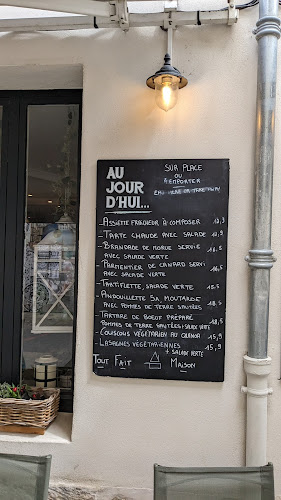 AU
JOUR
D'HUI...
SUR PLACE
OU
A EMPORTER
EAT HERE OR TAKE AWAY
- ASSIETTE FRAÎCHEUR À COMPOSER
- TARTE CHAUDE AVEC SALADE
- BRANDADE DE MORUE SERVIE
AVEC SALADE VERTE
- PARMENTIER DE CANARD SERVI
AVEC SALADE VERTE
- TARTIFLETTE, SALADE VERTE
- ANDOUILLETTE SA MOUTARDE
AVEC POMMES DE TERRE SAUTÉES
- TARTARE DE BOEUF PRÉPARÉ
POMMES DE TERRE SAUTÉES + SALADE VERTE
- COUSCOUS VÉGÉTARIEN AU QUINOA 15,9
- LASAGNES VÉGÉTARIENNES 15,9
+ SALADE VERTE
TOUT FAIT MAISON